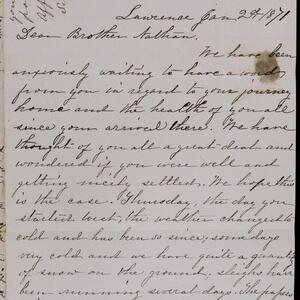 Lawrence Jan. 2d/1871
Dear Brother Nathan.
We have been
anxiously waiting to have a word
from you in regard to your journey
home and the health of you all
since your arrived there. We have
thought of you all a great deal and
wondered if you were well and
getting nicely settled. We hope this
is the case. Thursday, the day you
started West, the weather changed to
cold and has been so since; some days
very cold and we have quite a quantity
of snow on the ground, sleighs have
been running several days. The papers